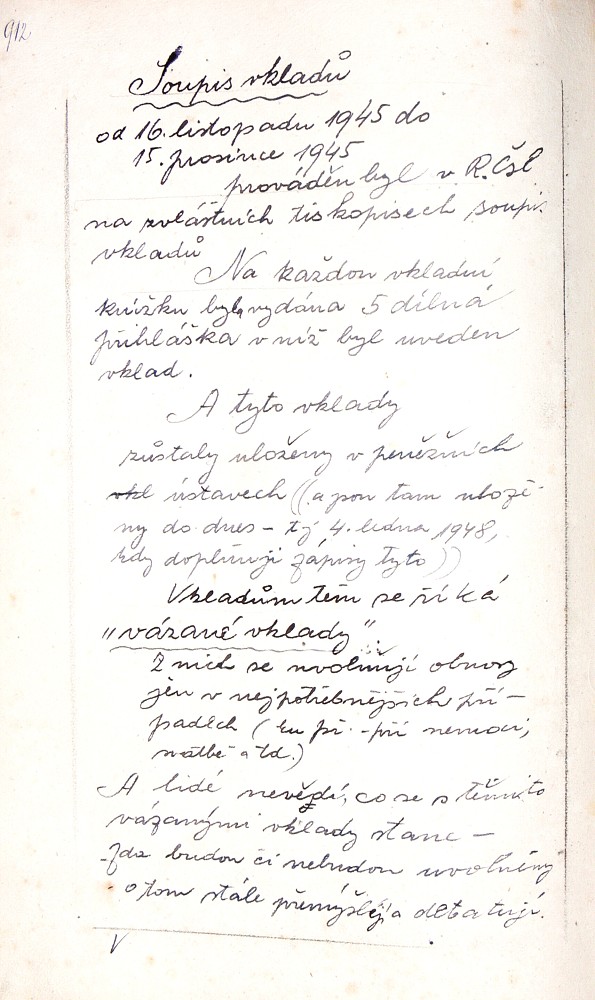 912
Soupis vkladů
od 16. listopadu 1945 do
15. prosince 1945
prováděn byl v R. Čsl
na zvláštních tiskopisech soupis
vkladů
Na každou vkladní
knížku byla vydána 5 dílná
přihláška v níž byl uveden
vklad.
A tyto vklady
zůstaly uloženy v peněžních
vkl ústavech ((a jsou tam ulože-
ny do dnes – tj 4. ledna 1948,
kdy doplňuji zápisy tyto))
Vkladům těm se říká
"vázané vklady".
Z nich se uvolňují obnosy
jen v nejpotřebnějších pří-
padech (ku př. - při nemoci,
svatbě a td.)
A lidé nevědí, co se s těmito
vázanými vklady stane –
- zda budou či nebudou uvolněny
o tom stále přemýšlejí a debatují.
V